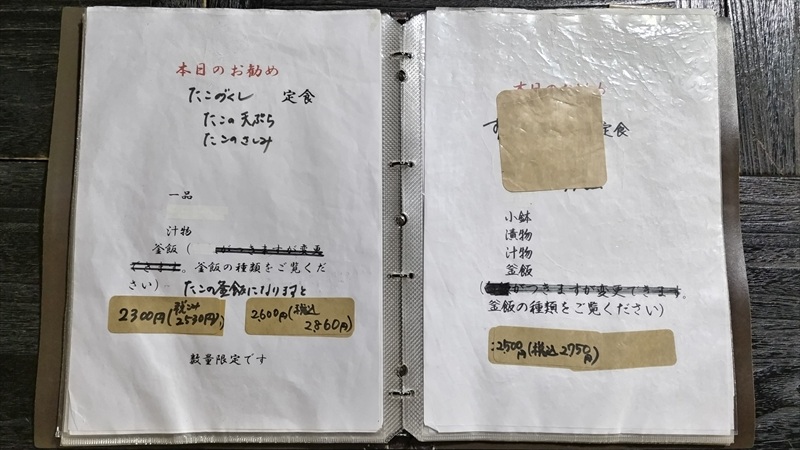 本日のお勧め
たこづくし 定食
たこの天ぷら
たこのさしみ
一品
汁物
釜飯(がつきますが変更
できます。釜飯の種類をご覧くだ
さい) たこの釜飯になりますと
2300円(税込み2530円)
2,600円(税込2860円)
数量限定です
本日の
定食
小鉢
漬物
汁物
釜飯
(がつきますが変更できます。
釜飯の種類をご覧ください)
:2,500円(税込2750円)